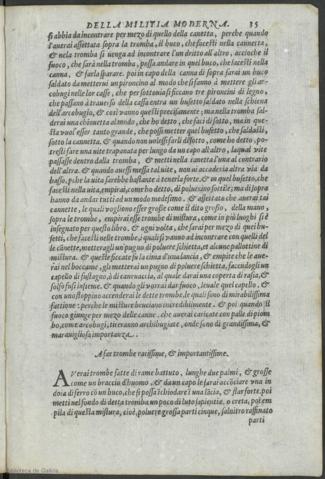 DELLA MILITIA MODERNA. 35
si abbia da incontrare per mezo di quello della canetta, perche quando
d'auerai assettata sopra la tromba, il buco, che facesti nella cannetta,
& nela tromba si uenga ad incontrare l'un dritto all'altro, accioche il
fuoco, che sarà nella tromba, possa andare in quel buco, che facesti nella
canna, & farla sparare. poi in capo della canna di sopra farai un buco
saldato da metterui un pironcino al modo che si fanno à mettere gli ar-
cobugi nelle lor casse, che per sottouia si ficcano tre pironcini di legno,
che passano à trauerso della cassa entra un busetto saldato nella schiena
dell'arcobugio, & così vanno questi precisamente; ma nella tromba sal-
derai una chiauetta al modo, che ho detto, che faci di sotto, ma in que-
sta vuol esser tanto grande, che possi metter quel busetto, che saldasti
sotto la cannetta. & quando non uolessi farli disotto, come ho detto, po-
tresti fare una uite trapanata per lungo da un capo all'altro, laqual vite
passasse dentro dalla tromba, & metti nella canetta l'una al contrario
dell'altra. & quando auessi messa tal uite, non ui accaderia altra via da
basso, perche la uita sarebbe bastante à tenerla forte, & in quel busetto, che
facesti nella uita, empirai, come ho detto, di poluerino sottile; ma di sopra
hanno da andar tutti ad un modo medesimo. & assettata che auerai tai
cannette, le quali vogliono esser grosse come il dito grosso, della mano,
sopra le trombe, empirai esse trombe di mistura, come in più luoghi si è
insegnato per questo libro, & ogni volta, che sarai per mezo di quei bu-
setti, che facesti nelle trombe, à quali si vanno ad incontrare con quelli del
le canette, metteragli un pugno di poluere schietta, et alcune pallottine di
mistura. & queste ficcate fin la cima d'una lancia, & empire che le aue-
rai nel boccame, gli metterai un pugno di poluere schietta, facendogli un
capello di fustagno, ò di canauaccia, al quale darai una coperta di rasa, &
solfo fusi insieme. & quando gli vorrai dar fuoco, leuale quel capello, &
con uno stoppino accenderai le dette trombe, le quali sono di mirabilissima
fattione: perche le misture bruciano incredibilmente. & poi quando il
fuoco giunge per mezo delle canne. che auerai caricate con palle di piom
bo, come arcobugi, tireranno archibugiate, onde sono di grandissima, &
marauigliosa importanza.
A far trombe raẽissime, & importantissime.
AVerai trombe fatte di rame battuto, lunghe due palmi, & grosse
come un braccio d'huomo. & da un capo le farai accõciare vna in
doia di ferro cõ un buco, che si possa ichiodare ĩ una lãcia, & star forte, poi
metti nel fondo di detta tromba un poco di luto sapiẽtie, o creta, poi em
pila di questa mistura, cioè, poluere grossa parti cinque, salnitro raffinato
parti
Biblioteca de Galicia